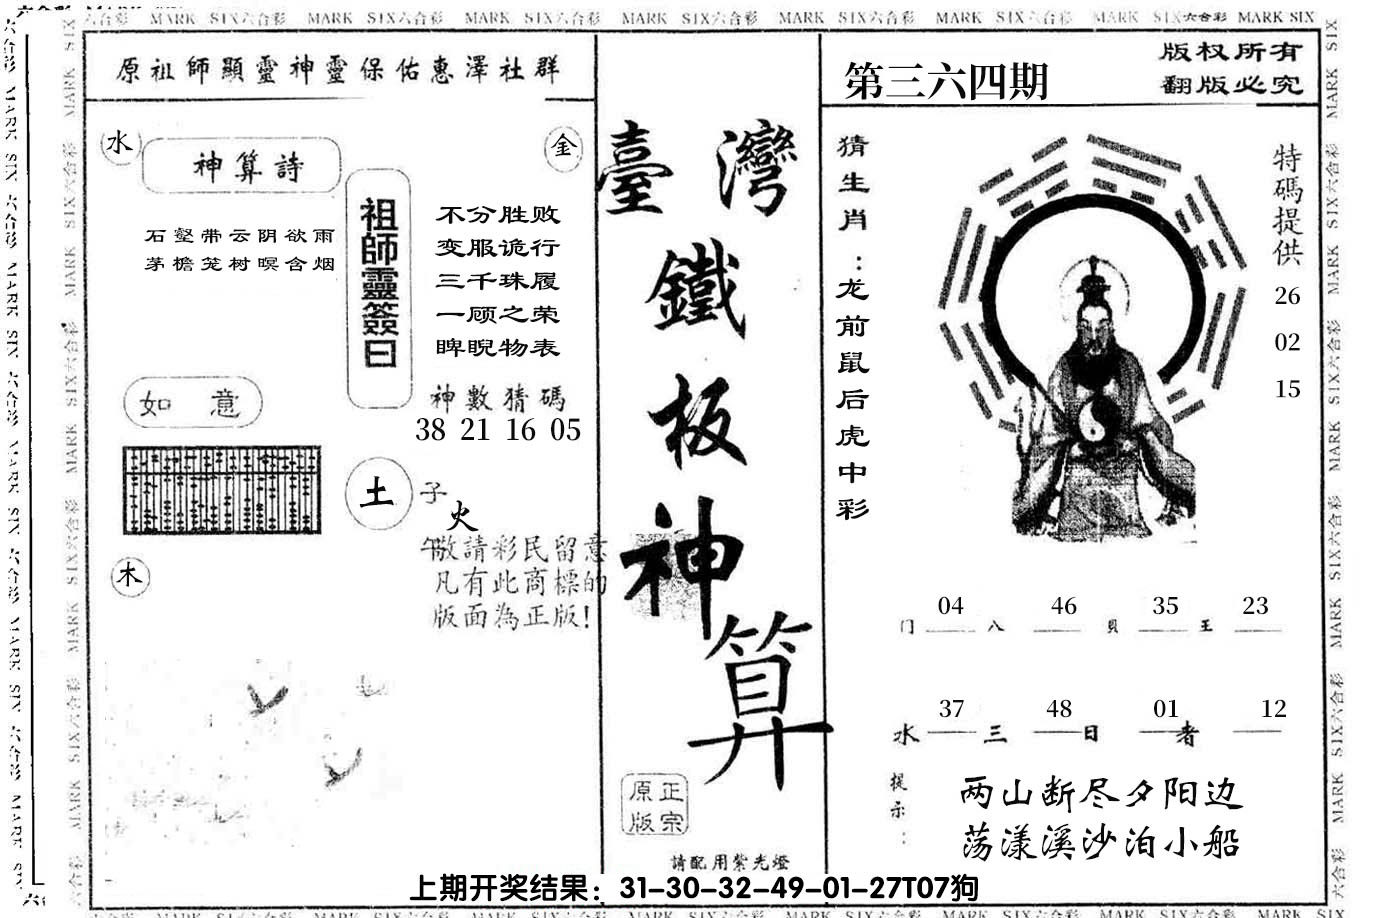 六合彩 MARK SIX六合彩 MARK SIX六合彩 MARK SIX六合彩 MARK SIX六合彩 MARK SIX六合彩 MARK SIX六合彩 MARK SIX六合彩 MARK SIX
原祖師顯靈神靈保佑惠澤社群
水
神算詩
金
石壑带云阴欲雨
茅檐笼树暝含烟
祖師靈簽曰
不分胜败
变服诡行
三千珠履
一顾之荣
睥睨物表
神數猜碼
38 21 16 05
如意
土
子
火
午
木
敬請彩民留意
凡有此商標的
版面為正版!
臺灣
鐵
板
神
算
正宗
原版
請配用紫光燈
第三六四期
版权所有
翻版必究
猜生肖:龙前鼠后虎中彩
特碼提供
26
02
15
04 46 35 23
门 八 貝 王
37 48 01 12
水 三 日 者
提示:
两山断尽夕阳边
荡漾溪沙泊小船
上期开奖结果：31-30-32-49-01-27T07狗